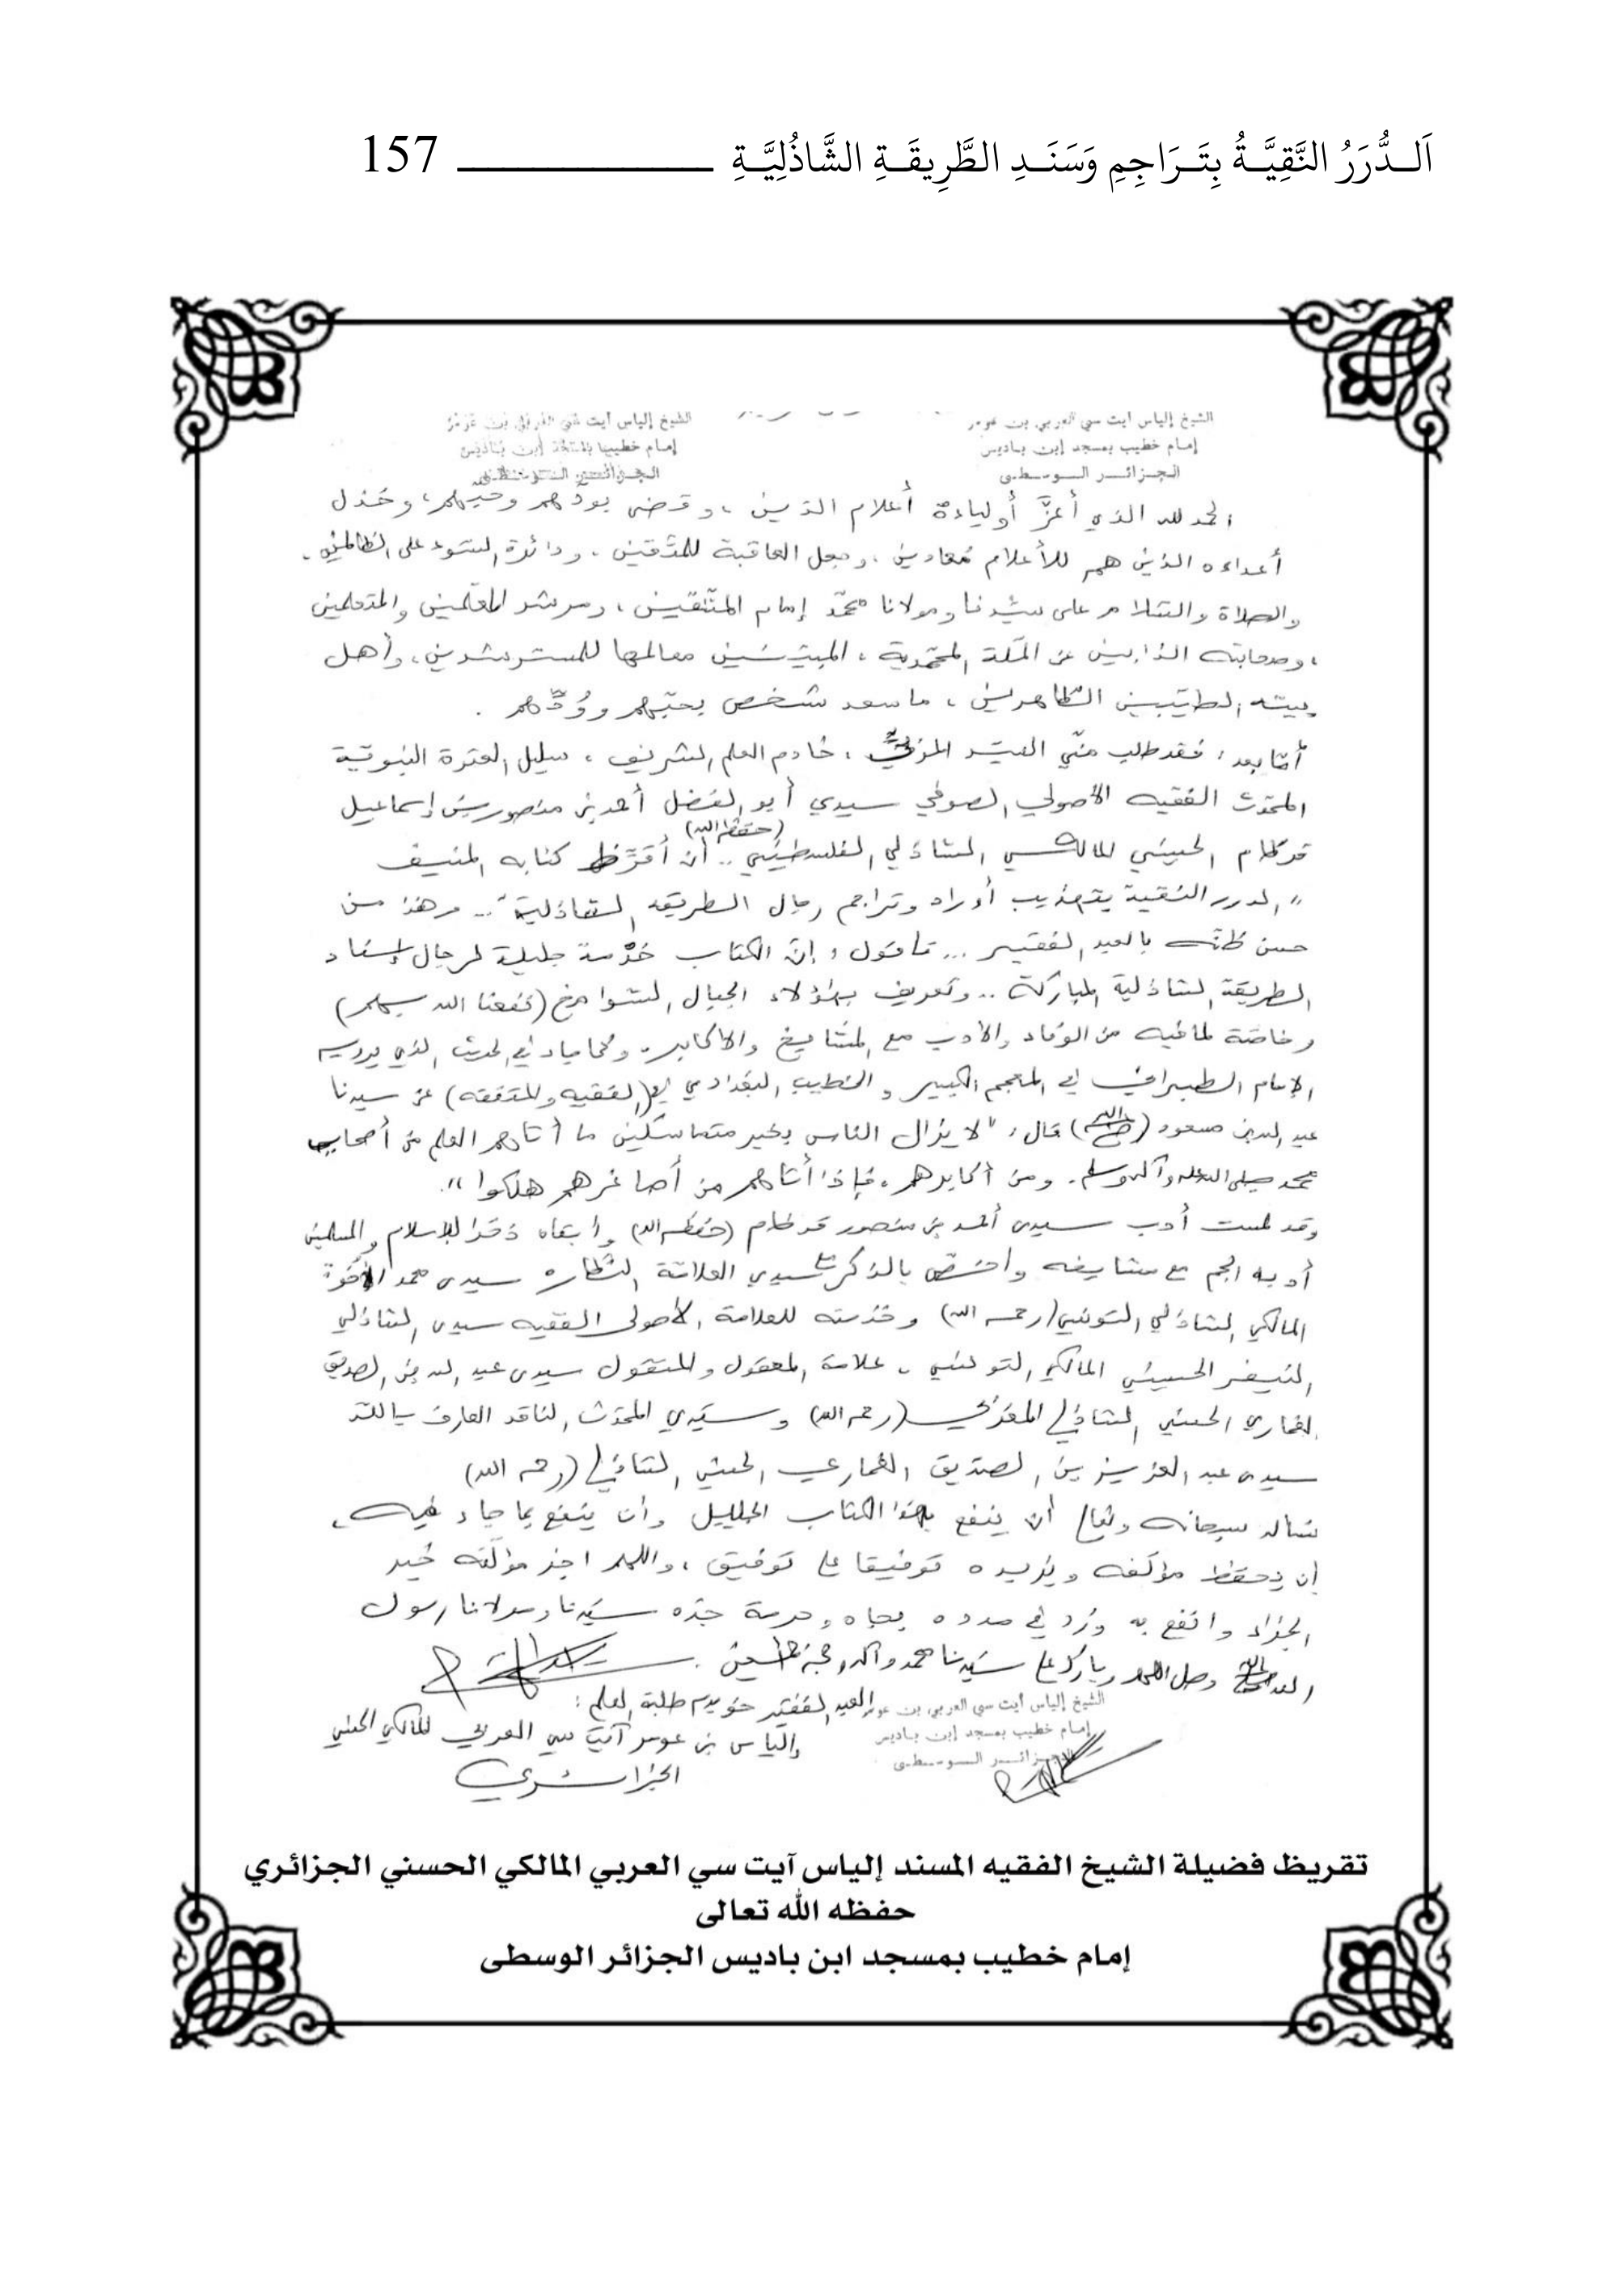 اَلــدُّرَرُ النَّقِيَّــةُ بِتَــرَاجِمِ وَسَنَــدِ الطَّرِيقَــةِ الشَّاذُلِيَّــةِ ــــــــــــــــــ 157
الشيخ إلياس آيت سي العربي بن عومر
إمام خطيب بمسجد إبن باديس
الجزائر الوسطى
الشيخ إلياس آيت سي العربي بن عومر
إمام خطيب بمسجد إبن باديس
الجزائر الوسطى
الحمد لله الذي أعزَّ أولياءه أعلام الدّين، وقرضى بودّهم وحبّهم، وخذل
أعداءه الذين هم للأعلام مُعادين، وجعل العاقبة للمتّقين، ودائرة السّوء على الظالمين.
والصلاة والسّلام على سيّدنا ومولانا محمّد إمام المتّقين، ومرشد المعلّمين والمتعلمين
، وصحابته الذّابين عن الملّة المحمّدية، المبيّنين معالمها للمسترشدين، وأهل
بيته الطيّبين الطّاهرين، ما سعد شخص بحبّهم ووُدّهم.
أمّا بعد: فقد طلب منّي السيّد المربي، خادم العلم الشريف، سليل العترة النبويّة
المحدّث الفقيه الأصولي الصوفي سيدي أبو الفضل أحمد بن منصور بن إسماعيل
قرطام الحسيني المالكي الشاذلي الفلسطيني (حفظه الله) .. أن أقرّظ كتابه المنيف
"الدرر النقية بتهذيب أوراد وتراجم رجال الطريقة الشاذلية" .. وهذا من
حسن ظنّه بالعبد الفقير ... فأقول: إنّ الكتاب خدمة جليلة لرجال إسناد
الطريقة الشاذلية المباركة .. وتعريف بهؤلاء الجبال الشوامخ (نفعنا الله بهم)
وخاصّة لما فيه من الوفاء والأدب مع المشايخ والأكابر. وكما جاء في الحديث الذي يرويه
الإمام الطبراني في المعجم الكبير والخطيب البغدادي في (الفقيه والمتفقه) عن سيدنا
عبد الله بن مسعود (رضي الله عنه) قال: "لا يزال الناس بخير متماسكين ما أتاهم العلم من أصحاب
محمد صلى الله عليه وآله وسلم. ومن أكابرهم، فإذا أتاهم من أصاغرهم هلكوا".
وقد لمست أدب سيدي أحمد بن منصور قرطام (حفظه الله) وأبقاه ذخرا للإسلام والمسلمين
أدبه الجم مع مشايخه وأخصّ بالذكر سيدي العلامة النظّار سيدي محمد الإخوة
المالكي الشاذلي التونسي (رحمه الله) وخدمته للعلامة الأصولي الفقيه سيدي الشاذلي
النيفر الحسيني المالكي التونسي، علامة المعقول والمنقول سيدي عبد الله بن الصديق
الغماري الحسني الشاذلي المغربي (رحمه الله) وسيّدي المحدّث الناقد العارف بالله
سيدي عبد العزيز بن الصدّيق الغماري الحسني الشاذلي (رحمه الله)
نسأله سبحانه وتعالى أن ينفع بهذا الكتاب الجليل وأن ينفع بما جاء فيه،
أن يحفظ مؤلّفه ويزيده توفيقا على توفيق، واللهم اجز مؤلّفه خير
الجزاء وانفع به وزد في مدده بجاه وحرمة جدّه سيّدنا ومولانا رسول
الله وصل اللهم وبارك على سيّدنا محمد وآله وصحبه أجمعين.
العبد الفقير خويدم طلبة العلم:
إلياس بن عومر آيت سي العربي المالكي الحسني
الجزائري
الشيخ إلياس آيت سي العربي بن عومر
إمام خطيب بمسجد إبن باديس
الجزائر الوسطى
تقريظ فضيلة الشيخ الفقيه المسند إلياس آيت سي العربي المالكي الحسني الجزائري
حفظه الله تعالى
إمام خطيب بمسجد ابن باديس الجزائر الوسطى